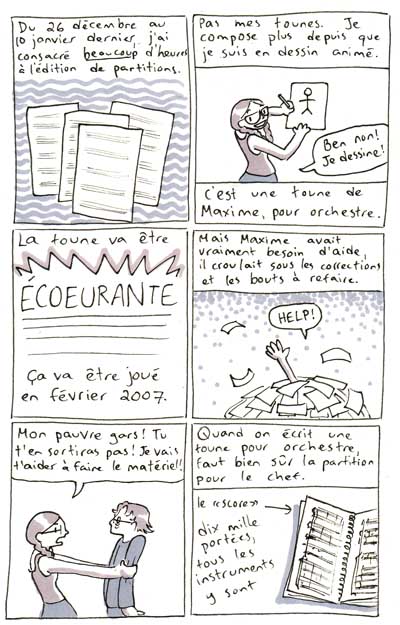 Du 26 décembre au
10 janvier dernier, j'ai
consacré beaucoup d'heures
à l'édition de partitions.
Pas mes tounes. Je
compose plus depuis que
je suis en dessin animé.
Ben non!
Je dessine!
C'est une toune de
Maxime, pour orchestre.
La toune va être
ÉCOEURANTE
Ça va être joué
en février 2007.
Mais Maxime avait
vraiment besoin d'aide,
il croulait sous les corrections
et les bouts à refaire.
HELP!
Mon pauvre gars! Tu
t'en sortiras pas! Je vais
t'aider à faire le matériel!
Quand on écrit une
toune pour orchestre,
faut bien sûr la partition
pour le chef.
le «score»
dix mille
portées,
tous les
instruments
y sont